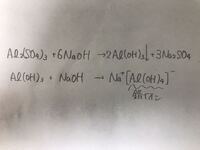 Al₂(SO₄)₃ + 6NaOH → 2Al(OH)₃↓ + 3Na₂SO₄
Al(OH)₃ + NaOH → Na⁺[Al(OH)₄]⁻
錯イオン